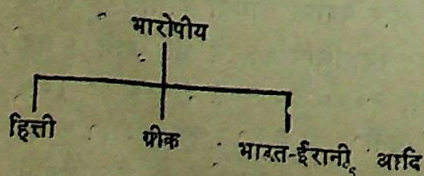 भारोपीय
हित्ती ग्रीक भारत-ईरानी, आदि